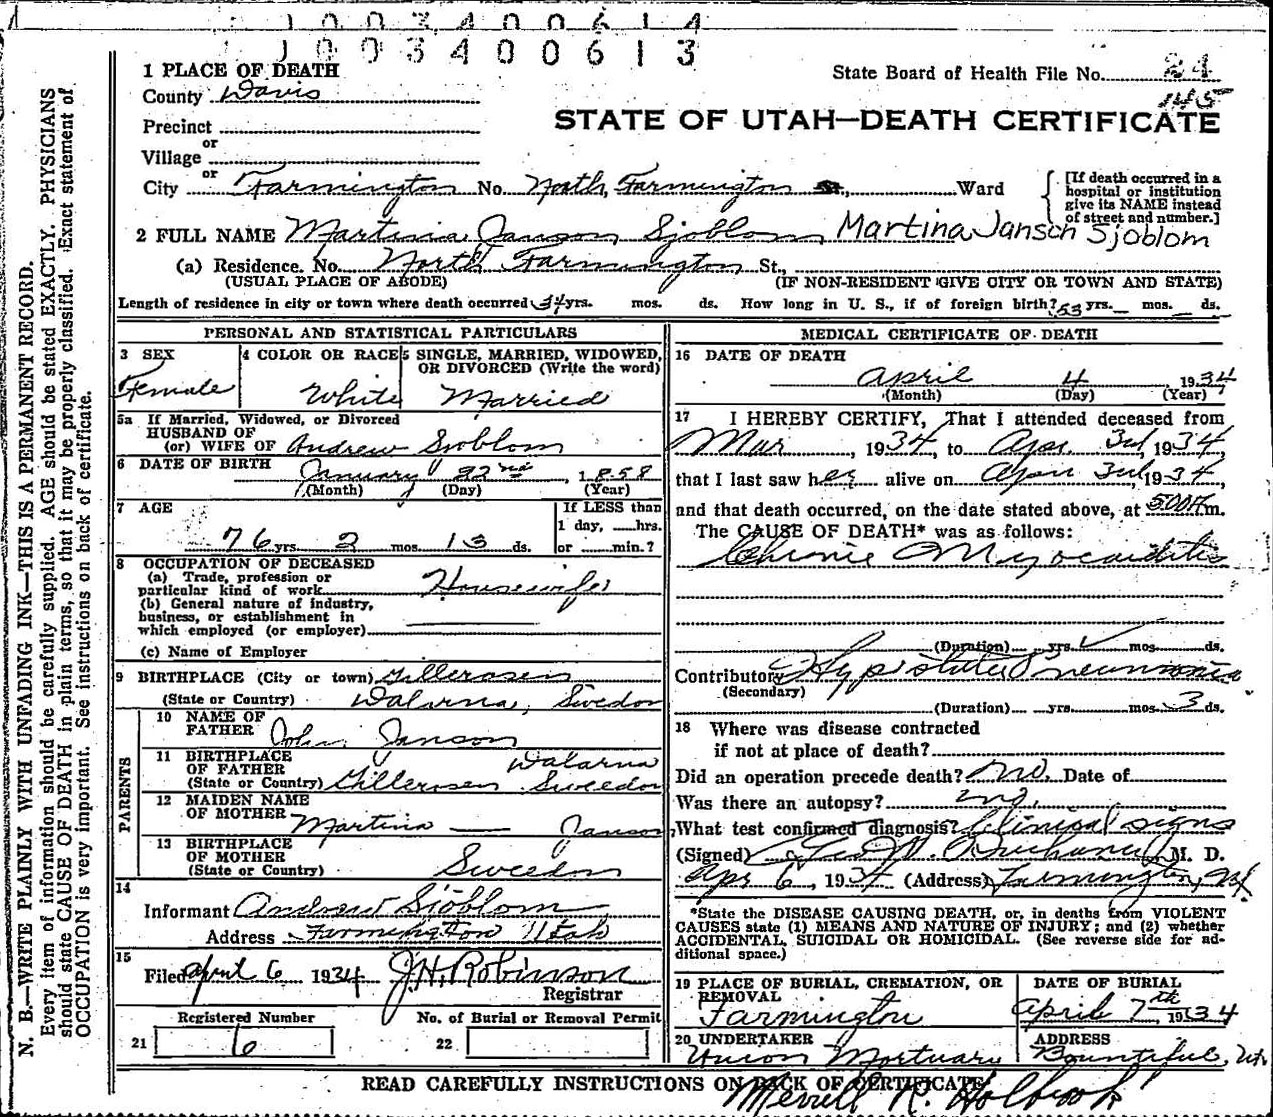 1003400614
1003400613
1 PLACE OF DEATH
State Board of Health File No. 24
145
County Davis
STATE OF UTAH—DEATH CERTIFICATE
Precinct
or
Village
or
City Farmington No. North Farmington St., Ward
[If death occurred in a hospital or institution give its NAME instead of street and number.]
2 FULL NAME Martina Janson Sjoblom Martina Jansen Sjoblom
(a) Residence. No. North Farmington St.,
(USUAL PLACE OF ABODE) (IF NON-RESIDENT GIVE CITY OR TOWN AND STATE)
Length of residence in city or town where death occurred 34 yrs. mos. ds. How long in U. S., if of foreign birth? 53 yrs. — mos. — ds.
PERSONAL AND STATISTICAL PARTICULARS
3 SEX Female
4 COLOR OR RACE White
5 SINGLE, MARRIED, WIDOWED, OR DIVORCED (Write the word) Married
5a If Married, Widowed, or Divorced
HUSBAND OF
(or) WIFE OF Andrew Sjoblom
6 DATE OF BIRTH January 22nd, 1858
(Month) (Day) (Year)
7 AGE
76 yrs. 2 mos. 13 ds.
If LESS than
1 day, hrs.
or min.?
8 OCCUPATION OF DECEASED
(a) Trade, profession or
particular kind of work Housewife
(b) General nature of industry,
business, or establishment in
which employed (or employer)
(c) Name of Employer
9 BIRTHPLACE (City or town) Gillerosen
(State or Country) Dalarna, Sweedon
PARENTS
10 NAME OF
FATHER John Janson
11 BIRTHPLACE Dalarna
OF FATHER
(State or Country) Gillerosen Sweedon
12 MAIDEN NAME
OF MOTHER Martina — Janson
13 BIRTHPLACE
OF MOTHER
(State or Country) Sweedon
14
Informant Andrew Sjoblom
Address Farmington Utah
15
Filed April 6 1934 J.H. Robinson
Registrar
Registered Number
21 6
No. of Burial or Removal Permit
22
MEDICAL CERTIFICATE OF DEATH
16 DATE OF DEATH
April 4 1934
(Month) (Day) (Year)
17 I HEREBY CERTIFY, That I attended deceased from
Mar, 1934, to Apr. 3rd, 1934,
that I last saw her alive on Apr 3rd, 1934,
and that death occurred, on the date stated above, at 5:00 A m.
The CAUSE OF DEATH* was as follows:
Chronic Myocarditis
(Duration) yrs. mos. ds.
Contributory Hypostatic Pneumonia
(Secondary)
(Duration) yrs. mos. 3 ds.
18 Where was disease contracted
if not at place of death?
Did an operation precede death? No. Date of
Was there an autopsy? no.
What test confirmed diagnosis? Clinical signs
(Signed) Geo. W. Buchanan M. D.
Apr 6, 1934 (Address) Farmington, Ut
*State the DISEASE CAUSING DEATH, or, in deaths from VIOLENT
CAUSES state (1) MEANS AND NATURE OF INJURY; and (2) whether
ACCIDENTAL, SUICIDAL OR HOMICIDAL. (See reverse side for ad-
ditional space.)
19 PLACE OF BURIAL, CREMATION, OR
REMOVAL
Farmington
DATE OF BURIAL
April 7th, 1934
20 UNDERTAKER
Union Mortuary
ADDRESS
Bountiful, Ut.
READ CAREFULLY INSTRUCTIONS ON BACK OF CERTIFICATE
Merrell R. Holbrook
N. B.—WRITE PLAINLY WITH UNFADING INK—THIS IS A PERMANENT RECORD.
Every item of information should be carefully supplied. AGE should be stated EXACTLY. PHYSICIANS
should state CAUSE OF DEATH in plain terms, so that it may be properly classified. Exact statement of
OCCUPATION is very important. See instructions on back of certificate.